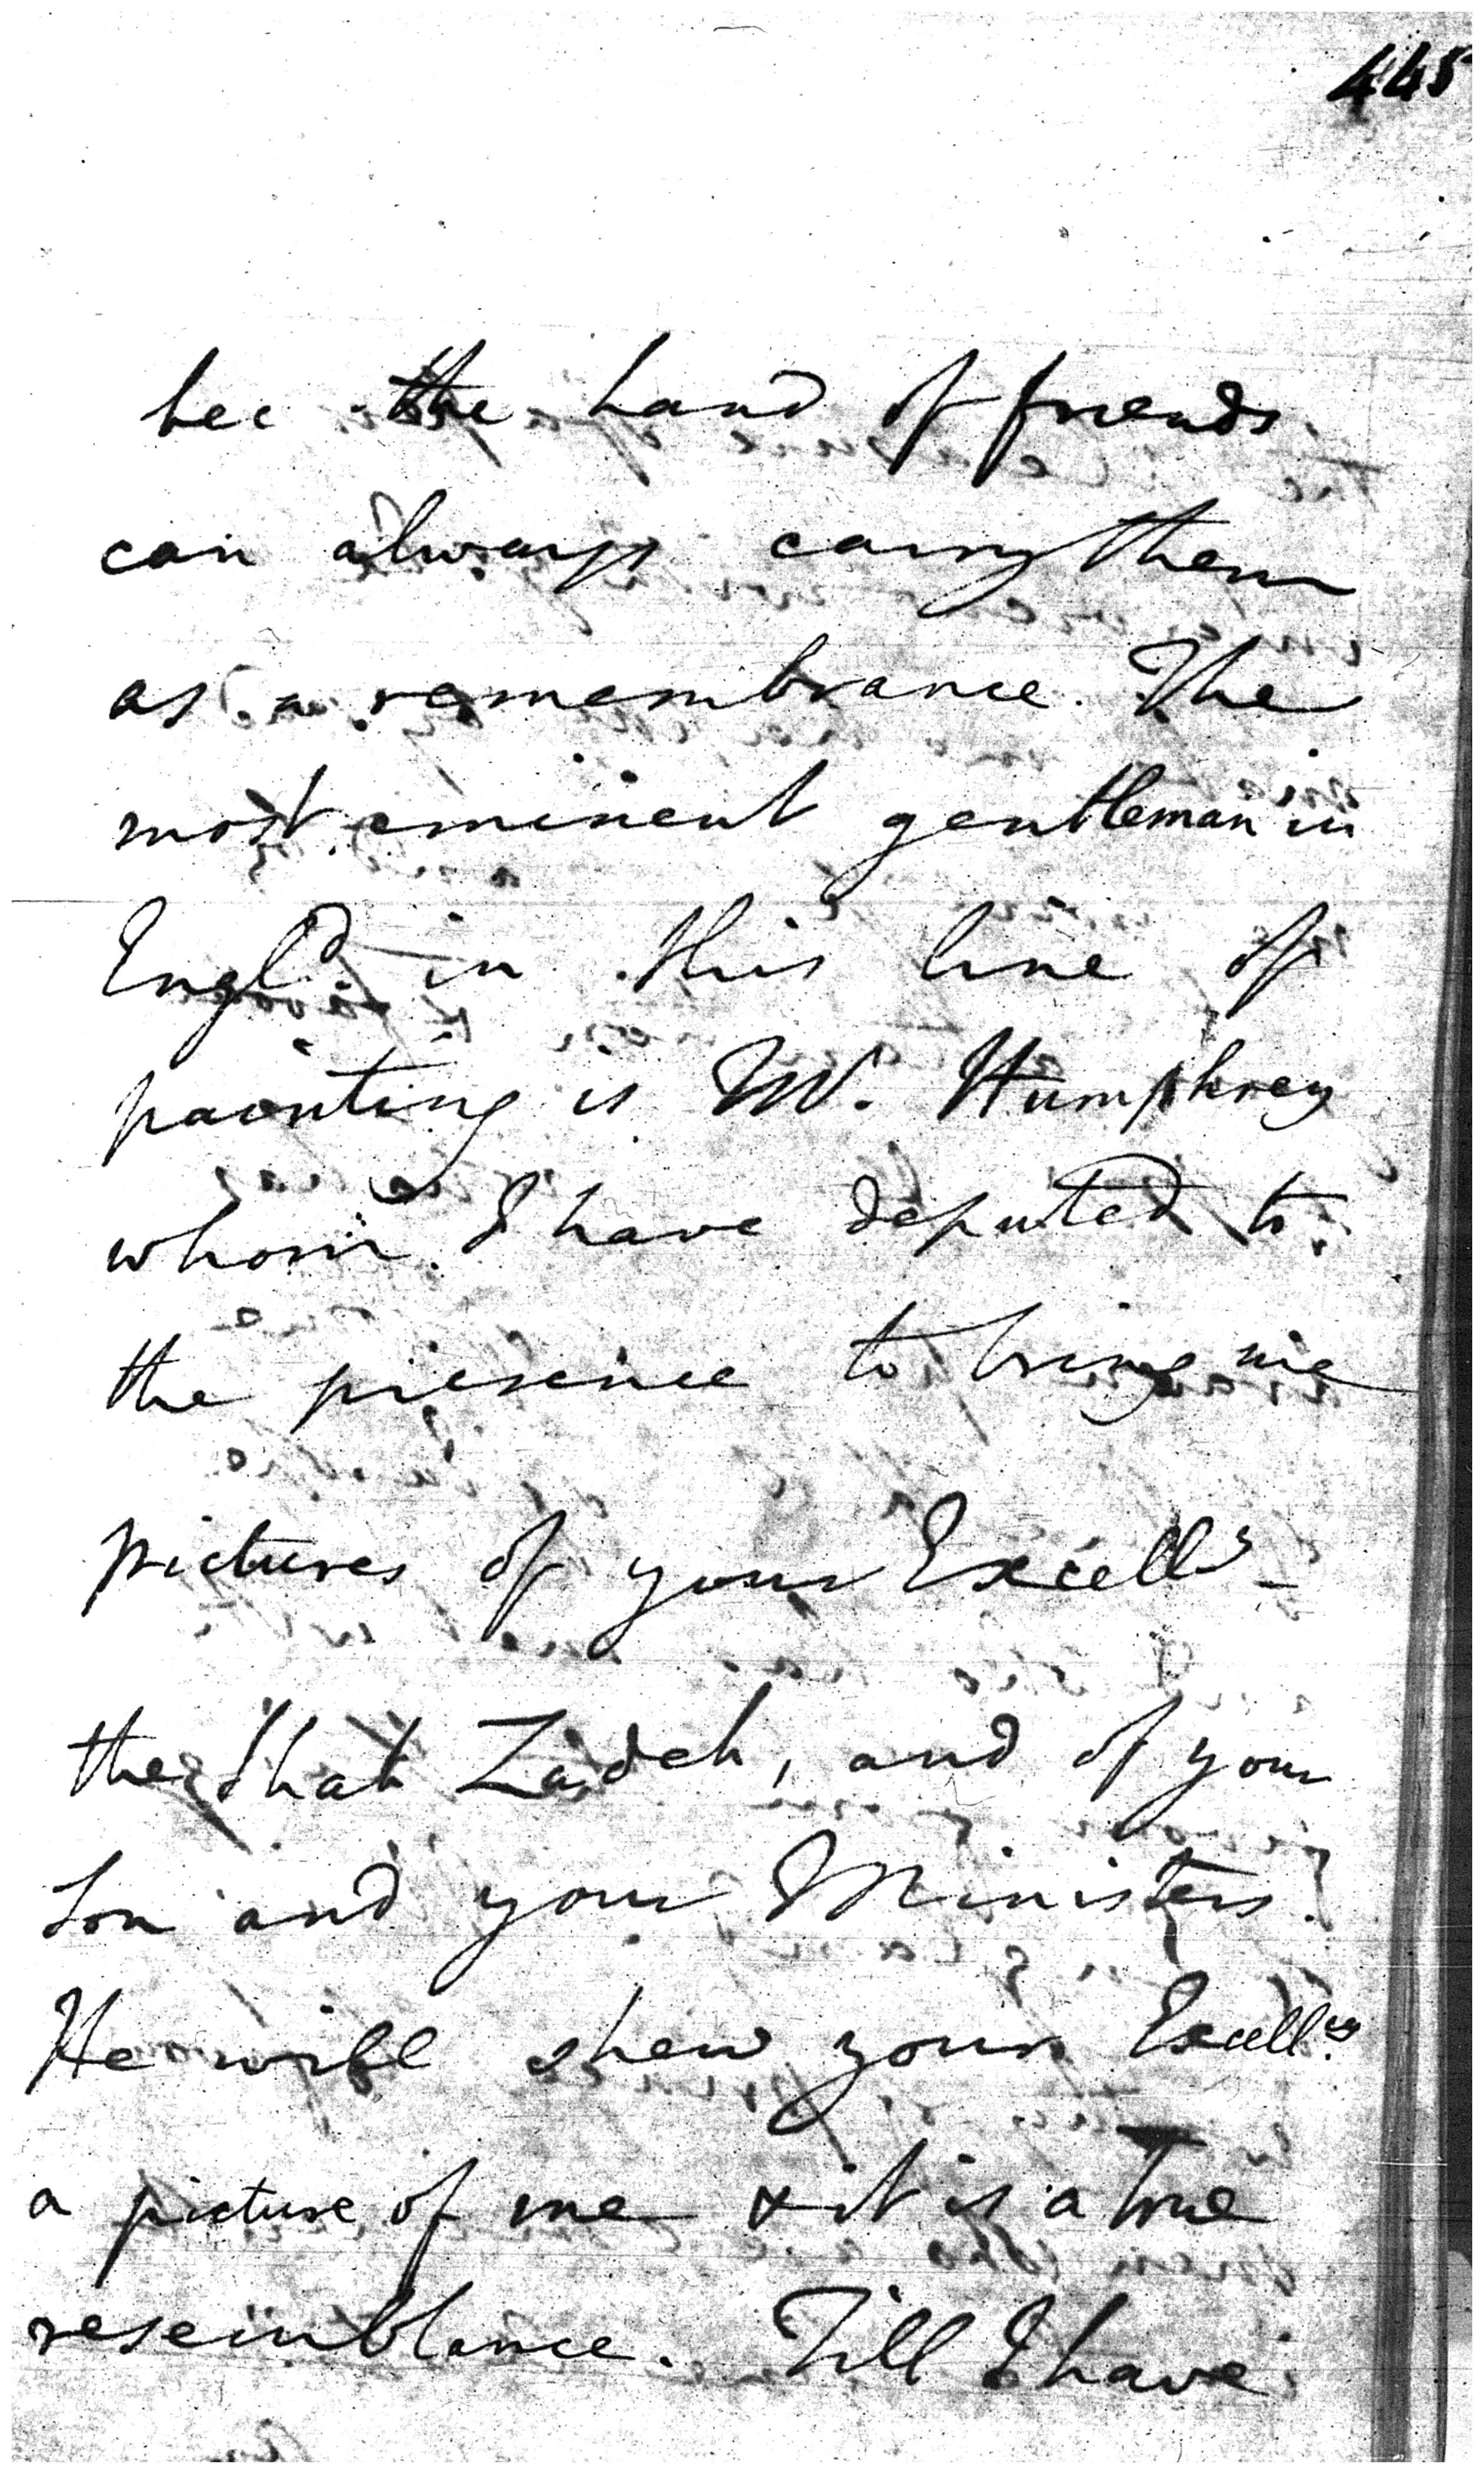 445
bee the hand of friends
can always carry them
as a remembrance. The
most eminent gentleman in
Engld. in this line of
painting is Mr. Humphrey
whom I have deputed to
the presence to bring me
pictures of your Excelly
the Shah Zadeh, and of your
Son and your Ministers.
He will shew your Excellcy
a picture of me & it is a true
resemblance. Till I have